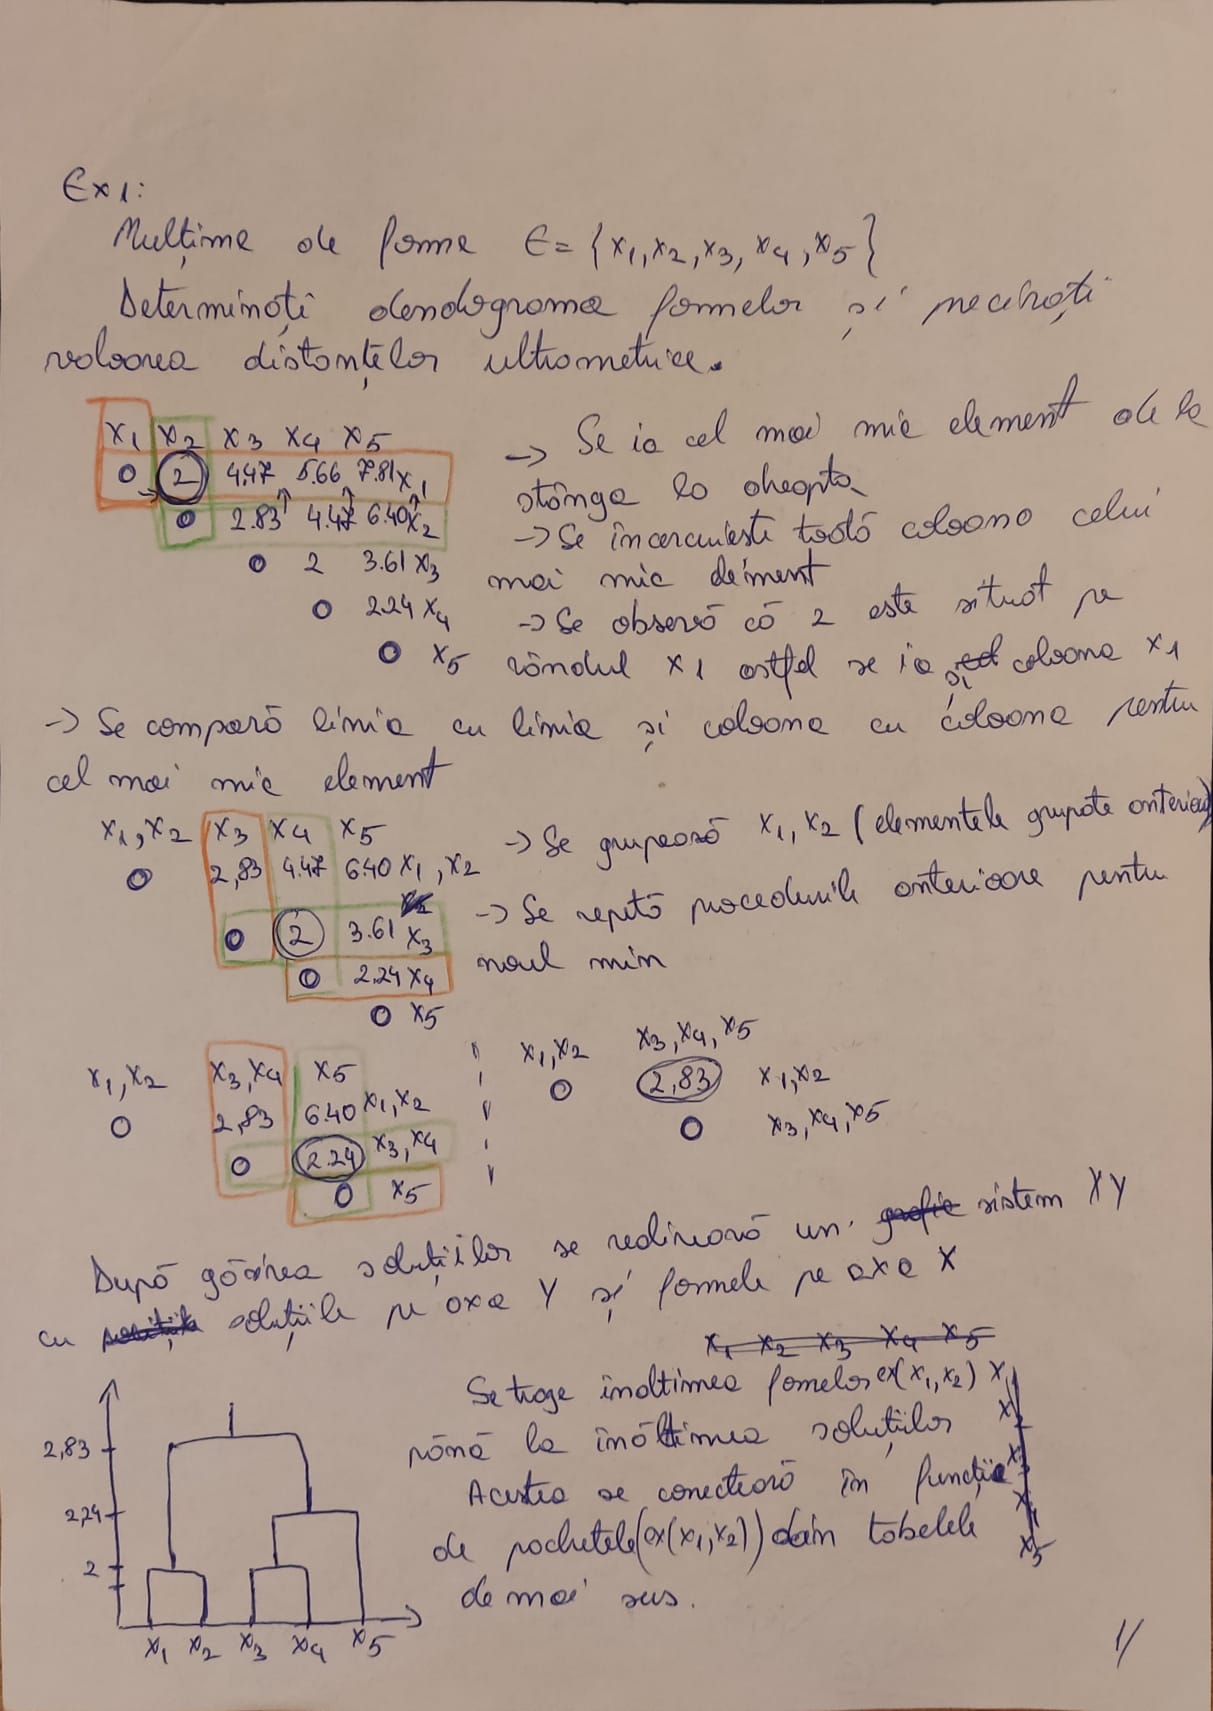 Ex1:
Mulțime de forme E = {x1, x2, x3, x4, x5}
Determinați dendograma formelor și precizați
valoarea distanțelor ultrametrice.
x1 x2 x3 x4 x5
0 2 4.47 5.66 7.81 x1
0 2.83 4.47 6.40 x2
0 2 3.61 x3
0 2.24 x4
0 x5
-> Se ia cel mai mic element de la
stânga la dreapta
-> Se incercuiește toată coloana celui
mai mic element
-> Se observă că 2 este situat pe
rândul x1 astfel se ia și coloana x1
-> Se compară linia cu linia și coloana cu coloana pentru
cel mai mic element
x1, x2 x3 x4 x5
0 2,83 4.47 6.40 x1, x2
0 2 3.61 x3
0 2.24 x4
0 x5
-> Se grupează x1, x2 (elementele grupate anterior)
-> Se repetă procedurile anterioare pentru
noul min
x1, x2 x3, x4 x5
0 2,83 6.40 x1, x2
0 2.24 x3, x4
0 x5
x1, x2 x3, x4, x5
0 2,83 x1, x2
0 x3, x4, x5
După găsirea soluțiilor se realizează un grafic sistem XY
cu soluțiile pe axa Y și formele pe axa X
x1 x2 x3 x4 x5
Se trage inaltimea formelor ex(x1, x2)
până la înălțimea soluțiilor
Acestea se conectează în funcție
de pachetele (ex(x1, x2)) dain tabelele
de mai sus.
x1
x2
x3
x4
x5
2,83
2,24
2
x1 x2 x3 x4 x5
1/